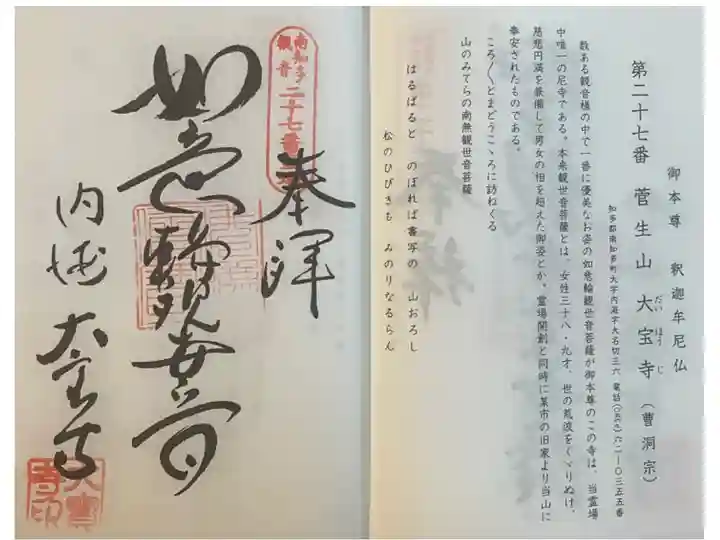 御本尊 釈迦牟尼仏
第二十七番 菅生山 大宝寺(曹洞宗)
だい ほう じ
知多郡南知多町大字内海字大名切三六 電話(〇五六九)六二-〇三五五番
数ある観音様の中で一番に優美なお姿の如意輪観世音菩薩が御本尊のこの寺は、当霊場
中唯一の尼寺である。本来観世音菩薩とは、女姓三十八・九才、世の荒波をくゞりぬけ、
慈悲円満を兼備して男女の相を超えた御姿とか。霊場開創と同時に某市の旧家より当山に
奉安されたものである。
ころ〳〵とまどうこゝろに訪ねくる
山のみてらの南無観世音菩薩
はるばると のぼれば書写の 山おろし
松のひびきも みのりなるらん
南知多
観音
二十七番
奉拝
如意輪観世音
内海 大宝寺